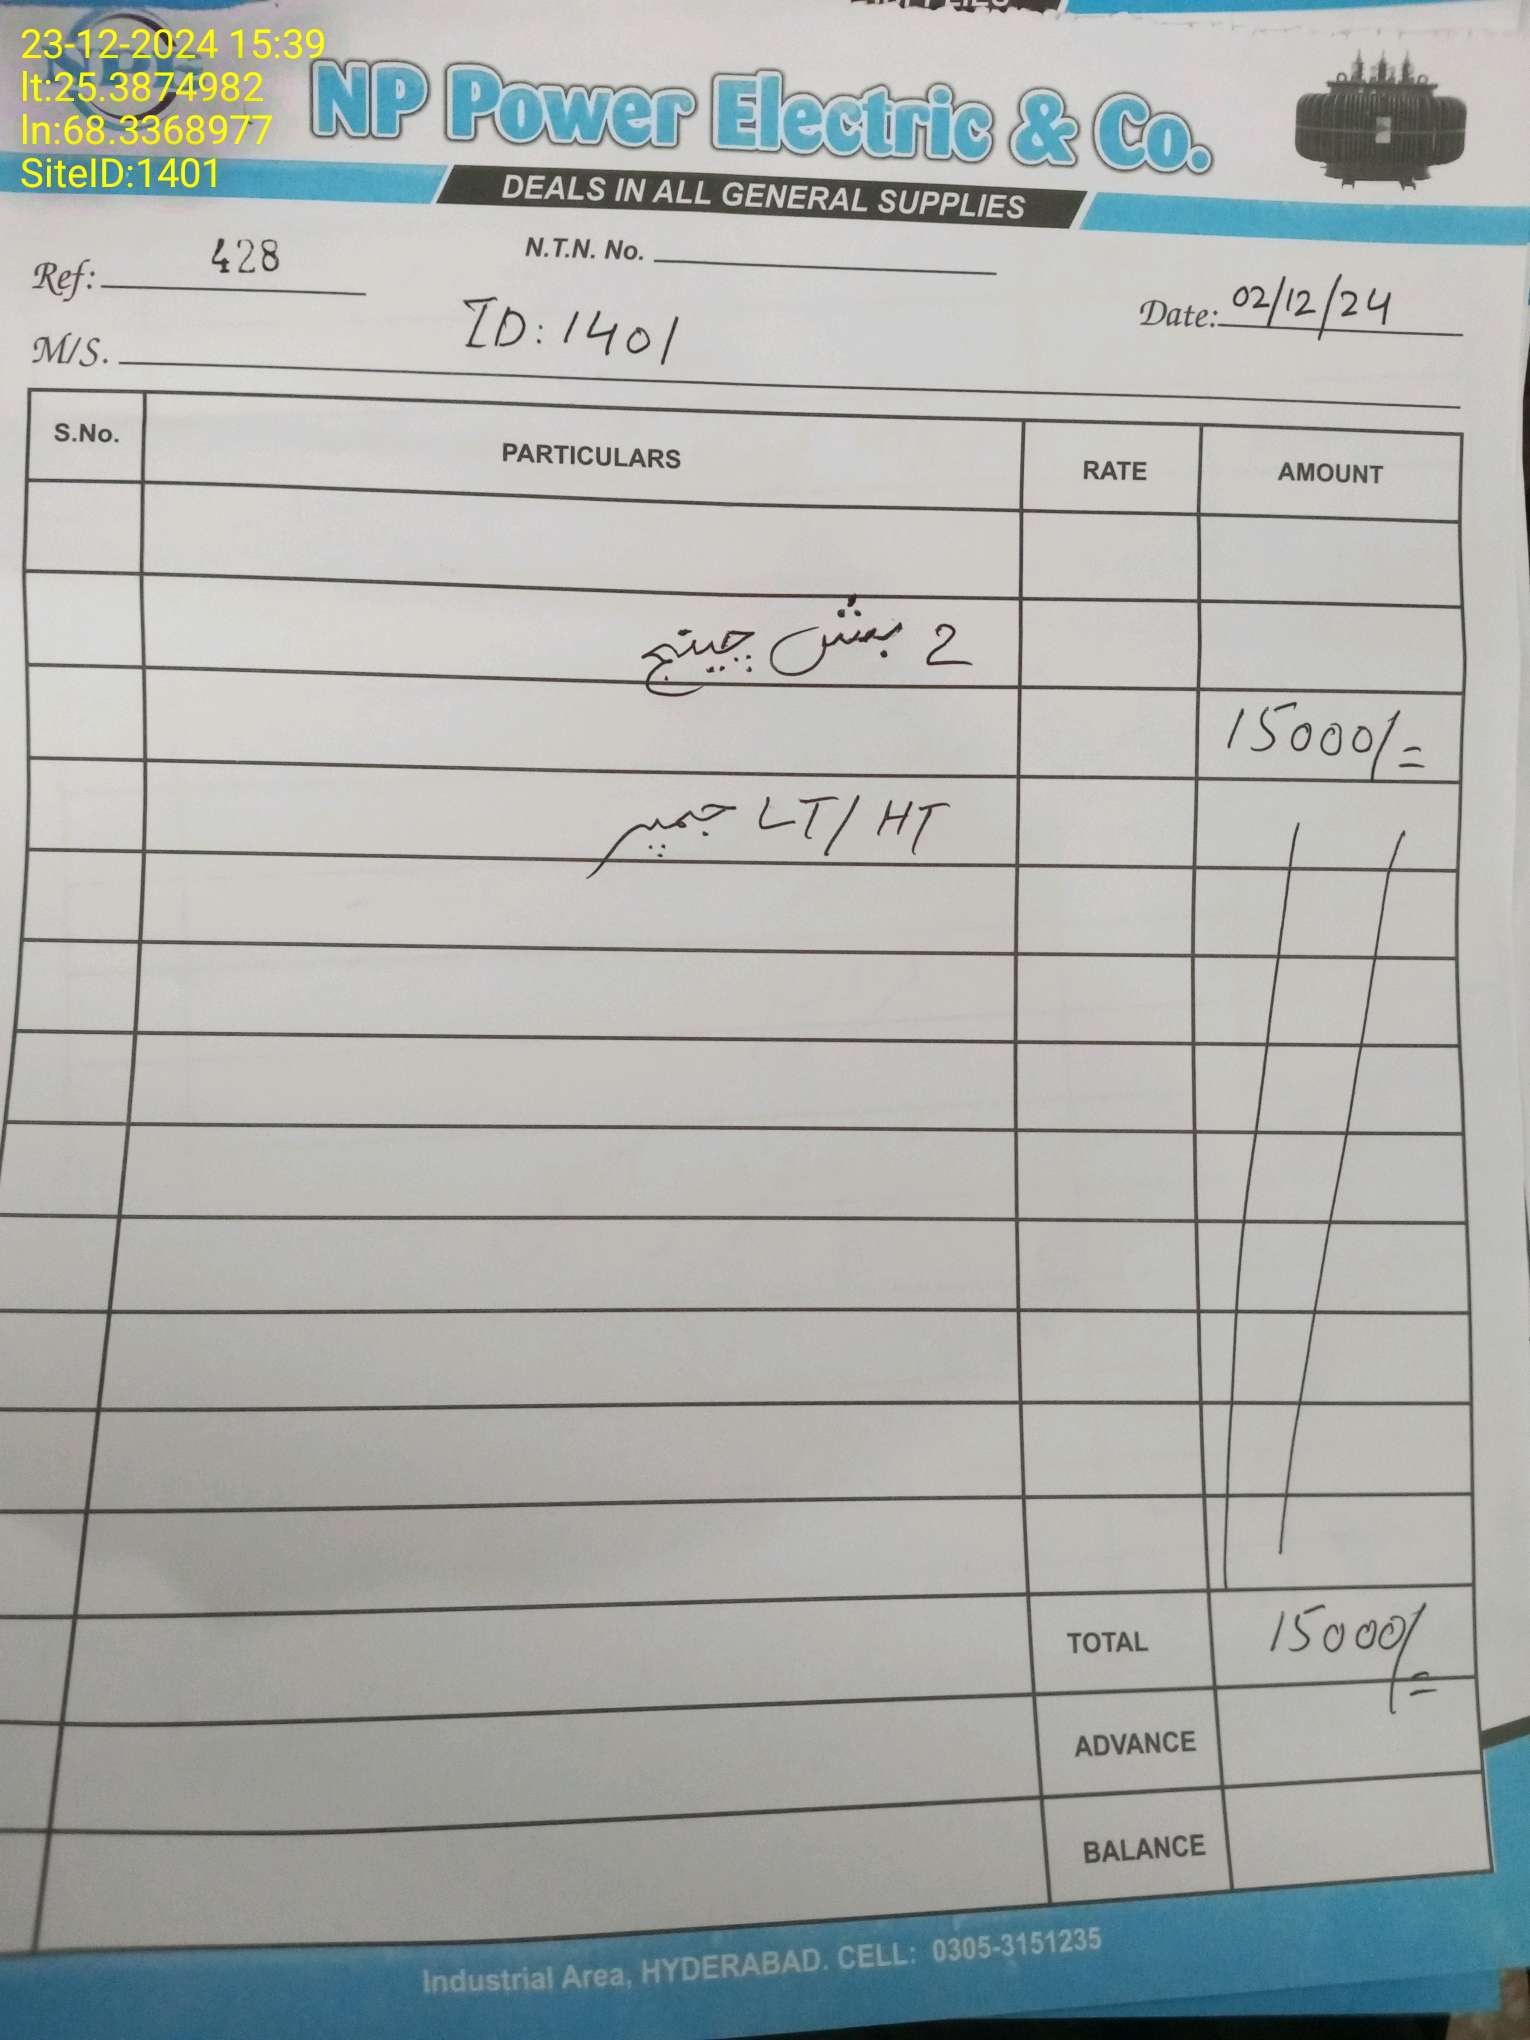 23-12-2024 15:39
lt:25.3874982
ln:68.3368977
SiteID:1401
NP Power Electric & Co.
DEALS IN ALL GENERAL SUPPLIES
Ref: 428
N.T.N. No.
Date: 02/12/24
M/S. ID: 1401
S.No. PARTICULARS RATE AMOUNT
2 بش چینج
15000/=
LT/HT جمپر
TOTAL 15000/=
ADVANCE
BALANCE
Industrial Area, HYDERABAD. CELL: 0305-3151235